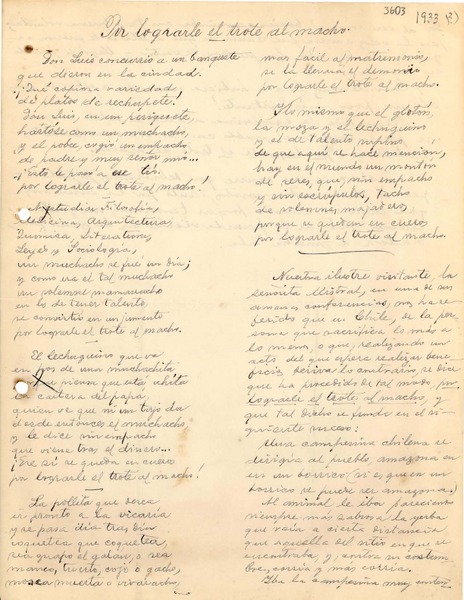 3603
1933 (?)
Por lograrle el trote al macho.
Don Luis concurrió a un banquete
que dieron en la ciudad.
¡Qué copia y variedad
de platos de rechupete!
Don Luis, en un periquete,
hartóse como un muchacho,
y el pobre cogió un empacho
de padre y muy señor mío...
¡Esto le pasó a ese tío
por lograrle el trote al macho!
Filosofía,
Medicina, Arquitectura,
Química, Literatura,
Leyes y Sociología,
un muchacho se fué un día;
y como era el tal muchacho
un solemne mamarracho
en lo de tener talento,
se convirtió en un jumento
por lograrle el trote al macho.
El lechuguino que va
en pos de una muchachita
que piensa que está ahíta
la cartera del papá,
quien ve que ni un tajo da
desde entonces el muchacho
y le dice sin empacho
que viene tras el dinero...
¡Ese sí se queda en cuero
por lograrle el trote al macho!
La pollita que desea
ir pronto a la vicaría
y se pasa día tras día
coqueta que coquetea,
sea guapo el galán, o sea
manco, tuerto, cojo o gacho,
mosca muerta o vivaracho,
más fácil al matrimonio,
se la lleva el demonio
por lograrle el trote al macho.
Y lo mismo que el glotón,
la moza y el lechuguino
y el de talento supino
de que aquí se hace mención,
hay en el mundo un montón
de seres que, sin empacho
y sin escrúpulos, tacho
de solemnes majaderos,
porque se quedan en cueros
por lograrle el trote al macho.
Nuestra ilustre visitante, la
señorita Mistral, en una de sus
amenas conferencias, nos ha re-
ferido que en Chile, de la per-
sona que sacrifica lo más a
lo menos, o que, realizando un
acto del que espera realizar bene-
ficios, deriva lo contrario, se dice
que ha procedido de tal modo por
lograrle el trote al macho, y
que tal dicho se funda en el si-
guiente suceso:
Una campesina chilena se
dirigía al pueblo, amazona en
un borrico (si es que en un
borrico se puede ser amazona.)
Al animal le iba pareciendo
siempre más sabrosa la yerba
que veía a cierta distancia
que aquella del sitio en que se
encontraba, y, contra su costum-
bre, corría y más corría.
Iba la campesina muy